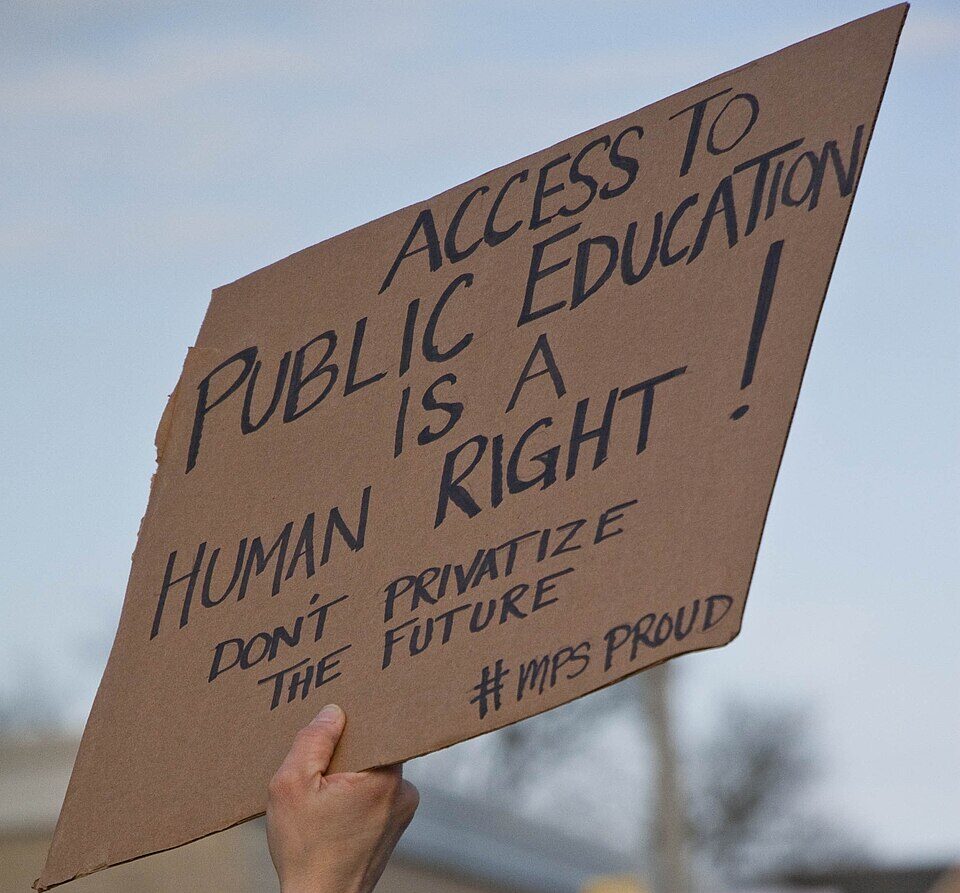 ACCESS TO
PUBLIC EDUCATION
IS A
HUMAN RIGHT!
DON'T PRIVATIZE
THE FUTURE
#MPS PROUD